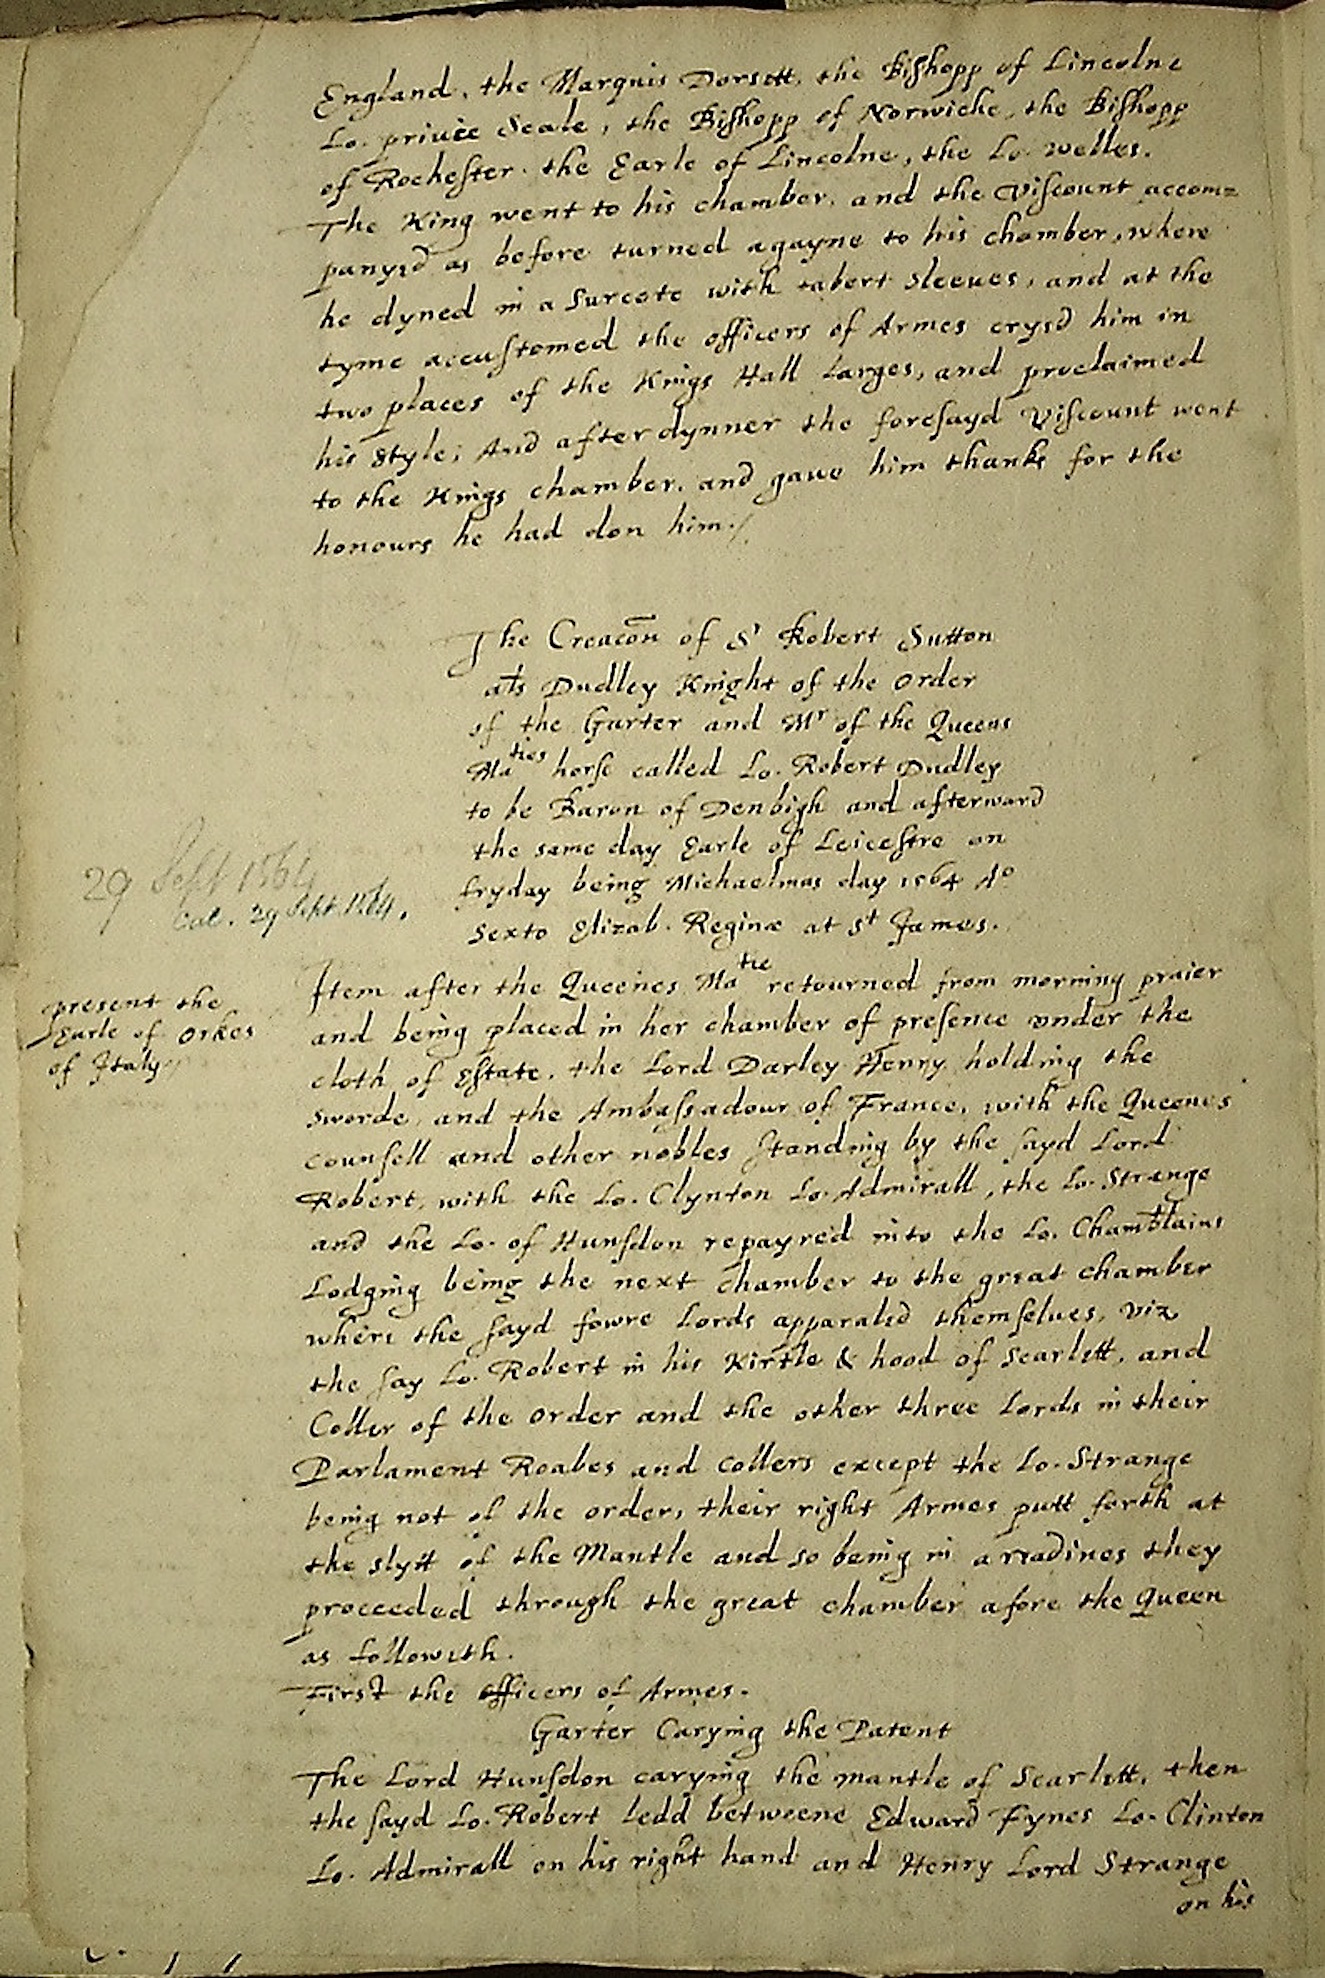 England, the Marquis Dorsett, the Bishopp of Lincolne
Lo. privie Seale, the Bishopp of Norwiche, the Bishopp
of Rochester. the Earle of Lincolne, the Lo. Welles.
The King went to his chamber, and the Viscount accom=
panyed as before turned agayne to his chamber, where
he dyned in a Surcote with tabert sleeves, and at the
tyme accustomed the officers of Armes cryed him in
two places of the Kings Hall Larges, and proclaimed
his style; And after dynner the foresayd Viscount went
to the Kings chamber, and gaue him thanks for the
honours he had don him./
The Creacōn of Sr Robert Sutton
als Dudley Knight of the Order
of the Garter and Mr of the Queens
Maties horse called Lo. Robert Dudley
to be Baron of Denbigh and afterward
the same day Earle of Leicestre on
fryday being Michaelmas day 1564 Ao
Sexto Elizab. Reginæ at St James.
29 Sept 1564
Cal. 29 Sept. 1564.
present the
Earle of Orkes
of Italy
Item after the Queenes Matie retourned from morning praier
and being placed in her chamber of presence vnder the
cloth of Estate. the Lord Darley Henry holding the
Sworde, and the Ambassadour of France, with the Queenes
counsell and other nobles standing by the sayd Lord
Robert, with the Lo. Clynton Lo. Admirall, the Lo. Strange
and the Lo. of Hunsdon repayred into the Lo. Chamblains
Lodging being the next chamber to the great chamber
where the sayd fowre Lords apparaled themselues, viz
the say Lo. Robert in his Kirtle & hood of Scarlett, and
Coller of the order and the other three Lords in their
Parlament Roabes and Collers except the Lo. Strange
being not of the order, their right Armes putt forth at
the slytt of the Mantle and so being in a readines they
proceeded through the great chamber afore the Queen
as followith.
First the officers of Armes.
Garter Carying the Patent
The Lord Hunsdon carying the mantle of Scarlett, then
the sayd Lo. Robert ledd betweene Edward Fynes Lo. Clinton
Lo. Admirall on his right hand and Henry Lord Strange
on his